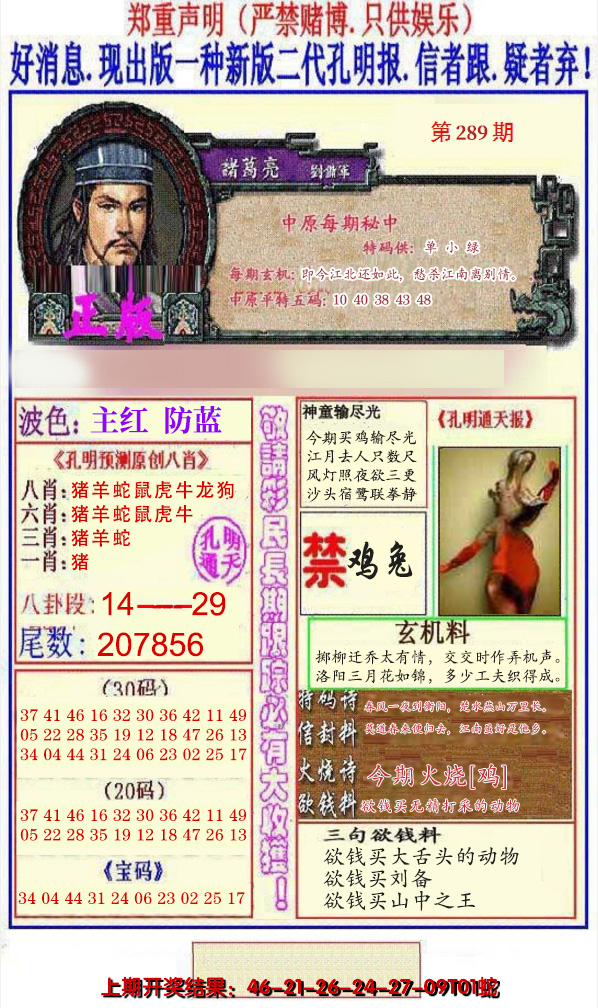 郑重声明（严禁赌博.只供娱乐）
好消息.现出版一种新版二代孔明报.信者跟.疑者弃!
第289期
諸葛亮 劉備軍
中原每期秘中
特码供：单 小 绿
每期玄机：即今江北还如此，愁杀江南离别情。
中原平特五码：10 40 38 43 48
正版
波色：主红 防蓝
《孔明预测原创八肖》
八肖：猪羊蛇鼠虎牛龙狗
六肖：猪羊蛇鼠虎牛
三肖：猪羊蛇
一肖：猪
孔明
通天
八卦段：14——29
尾数：207856
（30码）
37 41 46 16 32 30 36 42 11 49
05 22 28 35 19 12 18 47 26 13
34 04 44 31 24 06 23 02 25 17
（20码）
37 41 46 16 32 30 36 42 11 49
05 22 28 35 19 12 18 47 26 13
《宝码》
34 04 44 31 24 06 23 02 25 17
敬請彩民長期跟踪必有大收獲！
神童输尽光
今期买鸡输尽光
江月去人只数尺
风灯照夜欲三更
沙头宿鹭联拳静
《孔明通天报》
禁 鸡兔
玄机料
掷柳迁乔太有情，交交时作弄机声。
洛阳三月花如锦，多少工夫织得成。
特码诗
信封料
春风一夜到衡阳，楚水燕山万里长。
莫道春来便归去，江南虽好是他乡。
火烧诗 今期火烧[鸡]
欲钱料 欲钱买无精打采的动物
三句欲钱料
欲钱买大舌头的动物
欲钱买刘备
欲钱买山中之王
上期开奖结果：46-21-26-24-27-09T01蛇